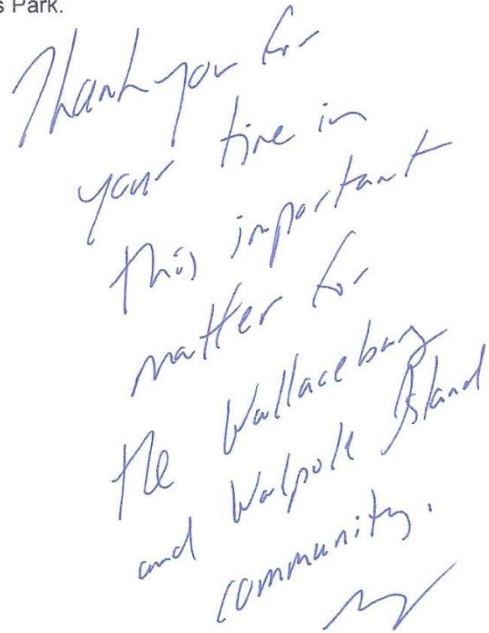 s Park.
Thank you for
your time in
this important
matter for
the Wallaceburg
and Walpole Island
community.